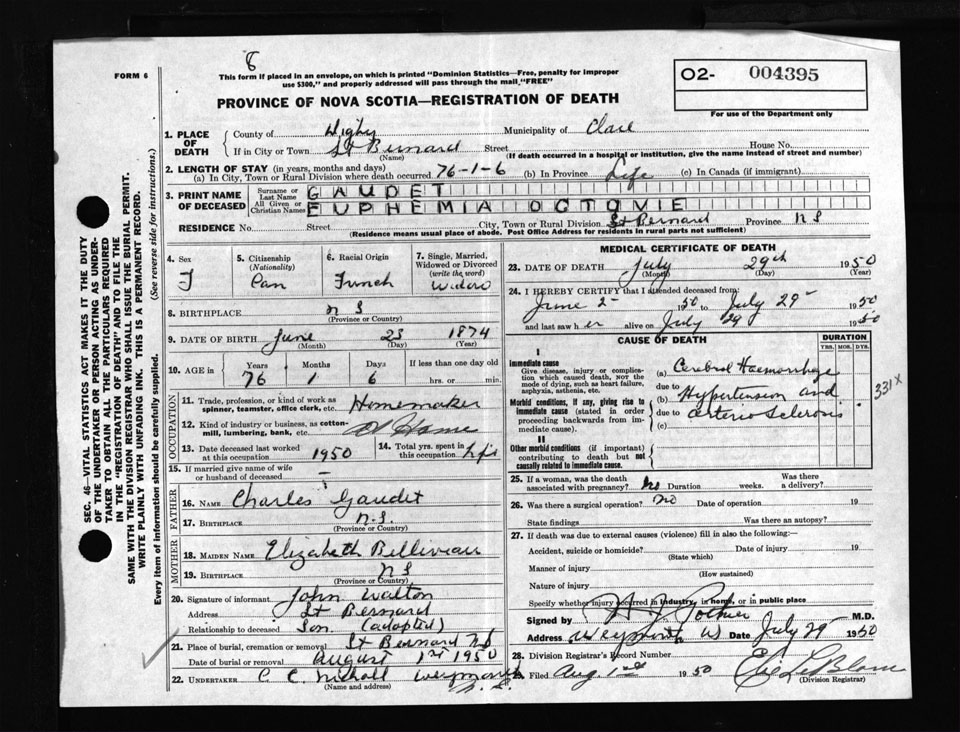 8
FORM 6
This form if placed in an envelope, on which is printed "Dominion Statistics—Free, penalty for improper
use $300," and properly addressed will pass through the mail "FREE"
O2- 004395
For use of the Department only
PROVINCE OF NOVA SCOTIA—REGISTRATION OF DEATH
1. PLACE OF DEATH
County of Digby Municipality of Clare
If in City or Town St Bernard Street House No.
(Name) (If death occurred in a hospital or institution, give the name instead of street and number)
2. LENGTH OF STAY (in years, months and days)
(a) In City, Town or Rural Division where death occurred 76-1-6 (b) In Province Life (c) In Canada (if immigrant)
3. PRINT NAME OF DECEASED
Surname or Last Name GAUDET
All Given or Christian Names EUPHEMIA OCTOVIE
RESIDENCE No. Street City, Town or Rural Division St Bernard Province N S
(Residence means usual place of abode. Post Office Address for residents in rural parts not sufficient)
4. Sex
F
5. Citizenship
(Nationality)
Can
6. Racial Origin
French
7. Single, Married,
Widowed or Divorced
(write the word)
Widow
8. BIRTHPLACE N S
(Province or County)
9. DATE OF BIRTH June 23 1874
(Month) (Day) (Year)
10. AGE in Years Months Days If less than one day old
76 1 6 hrs. or min.
OCCUPATION
11. Trade, profession, or kind of work as
spinner, teamster, office clerk, etc. Homemaker
12. Kind of industry or business, as cotton-
mill, lumbering, bank, etc. At Home
13. Date deceased last worked
at this occupation 1950
14. Total yrs. spent in
this occupation Life
15. If married give name of wife
or husband of deceased —
FATHER
16. NAME Charles Gaudet
17. BIRTHPLACE N.S.
(Province or Country)
MOTHER
18. MAIDEN NAME Elizabeth Belliveau
19. BIRTHPLACE N S
(Province or Country)
20. Signature of informant John Walton
Address St Bernard
Relationship to deceased Son (adopted)
21. Place of burial, cremation or removal St Bernard NS
Date of burial or removal August 1st 1950
22. UNDERTAKER C. C. Weymouth
(Name and address) N.S.
MEDICAL CERTIFICATE OF DEATH
23. DATE OF DEATH July 29th 1950
(Month) (Day) (Year)
24. I HEREBY CERTIFY that I attended deceased from:
June 2 1950 to July 29 1950
and last saw her alive on July 29 1950
CAUSE OF DEATH
DURATION
YRS. MOS. DYS.
I
Immediate cause
Give disease, injury or complica-
tion which caused death, NOT the
mode of dying, such as heart failure,
asphyxia, asthenia, etc.
(a) Cerebral Haemorrhage
due to
Morbid conditions, if any, giving rise to
immediate cause (stated in order
proceeding backwards from im-
mediate cause).
(b) Hypertension and
due to arterio sclerosis
(c)
331X
II
Other morbid conditions (if important)
contributing to death but not
causally related to immediate cause.
25. If a woman, was the death
associated with pregnancy? No Duration weeks. Was there
a delivery?
26. Was there a surgical operation? No Date of operation 19
State findings Was there an autopsy?
27. If death was due to external causes (violence) fill in also the following:—
Accident, suicide or homicide? Date of injury 19
(State which)
Manner of injury
(How sustained)
Nature of injury
Specify whether injury occurred in industry, in home, or in public place
Signed by H J Pothier M.D.
Address Weymouth Date July 29 1950
28. Division Registrar's Record Number
29. Filed Aug 1st 1950 LeBlanc
(Division Registrar)
SEC. 46—VITAL STATISTICS ACT MAKES IT THE DUTY
OF THE UNDERTAKER OR PERSON ACTING AS UNDER-
TAKER TO OBTAIN ALL THE PARTICULARS REQUIRED
IN THE "REGISTRATION OF DEATH" AND TO FILE THE
SAME WITH THE DIVISION REGISTRAR WHO SHALL ISSUE THE BURIAL PERMIT.
WRITE PLAINLY WITH UNFADING INK. THIS IS A PERMANENT RECORD.
Every item of information should be carefully supplied. (See reverse side for instructions.)